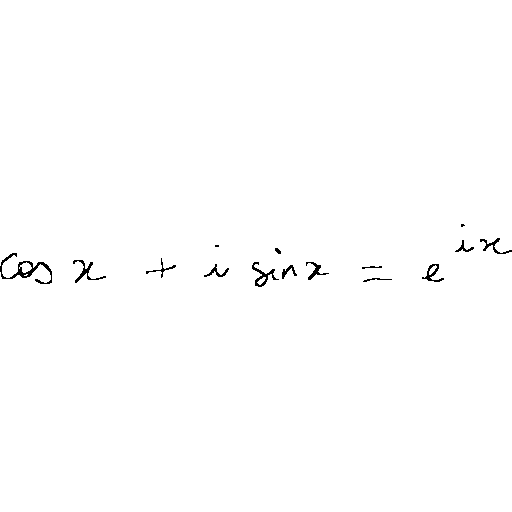 cos x + i sin x = e^{ix}